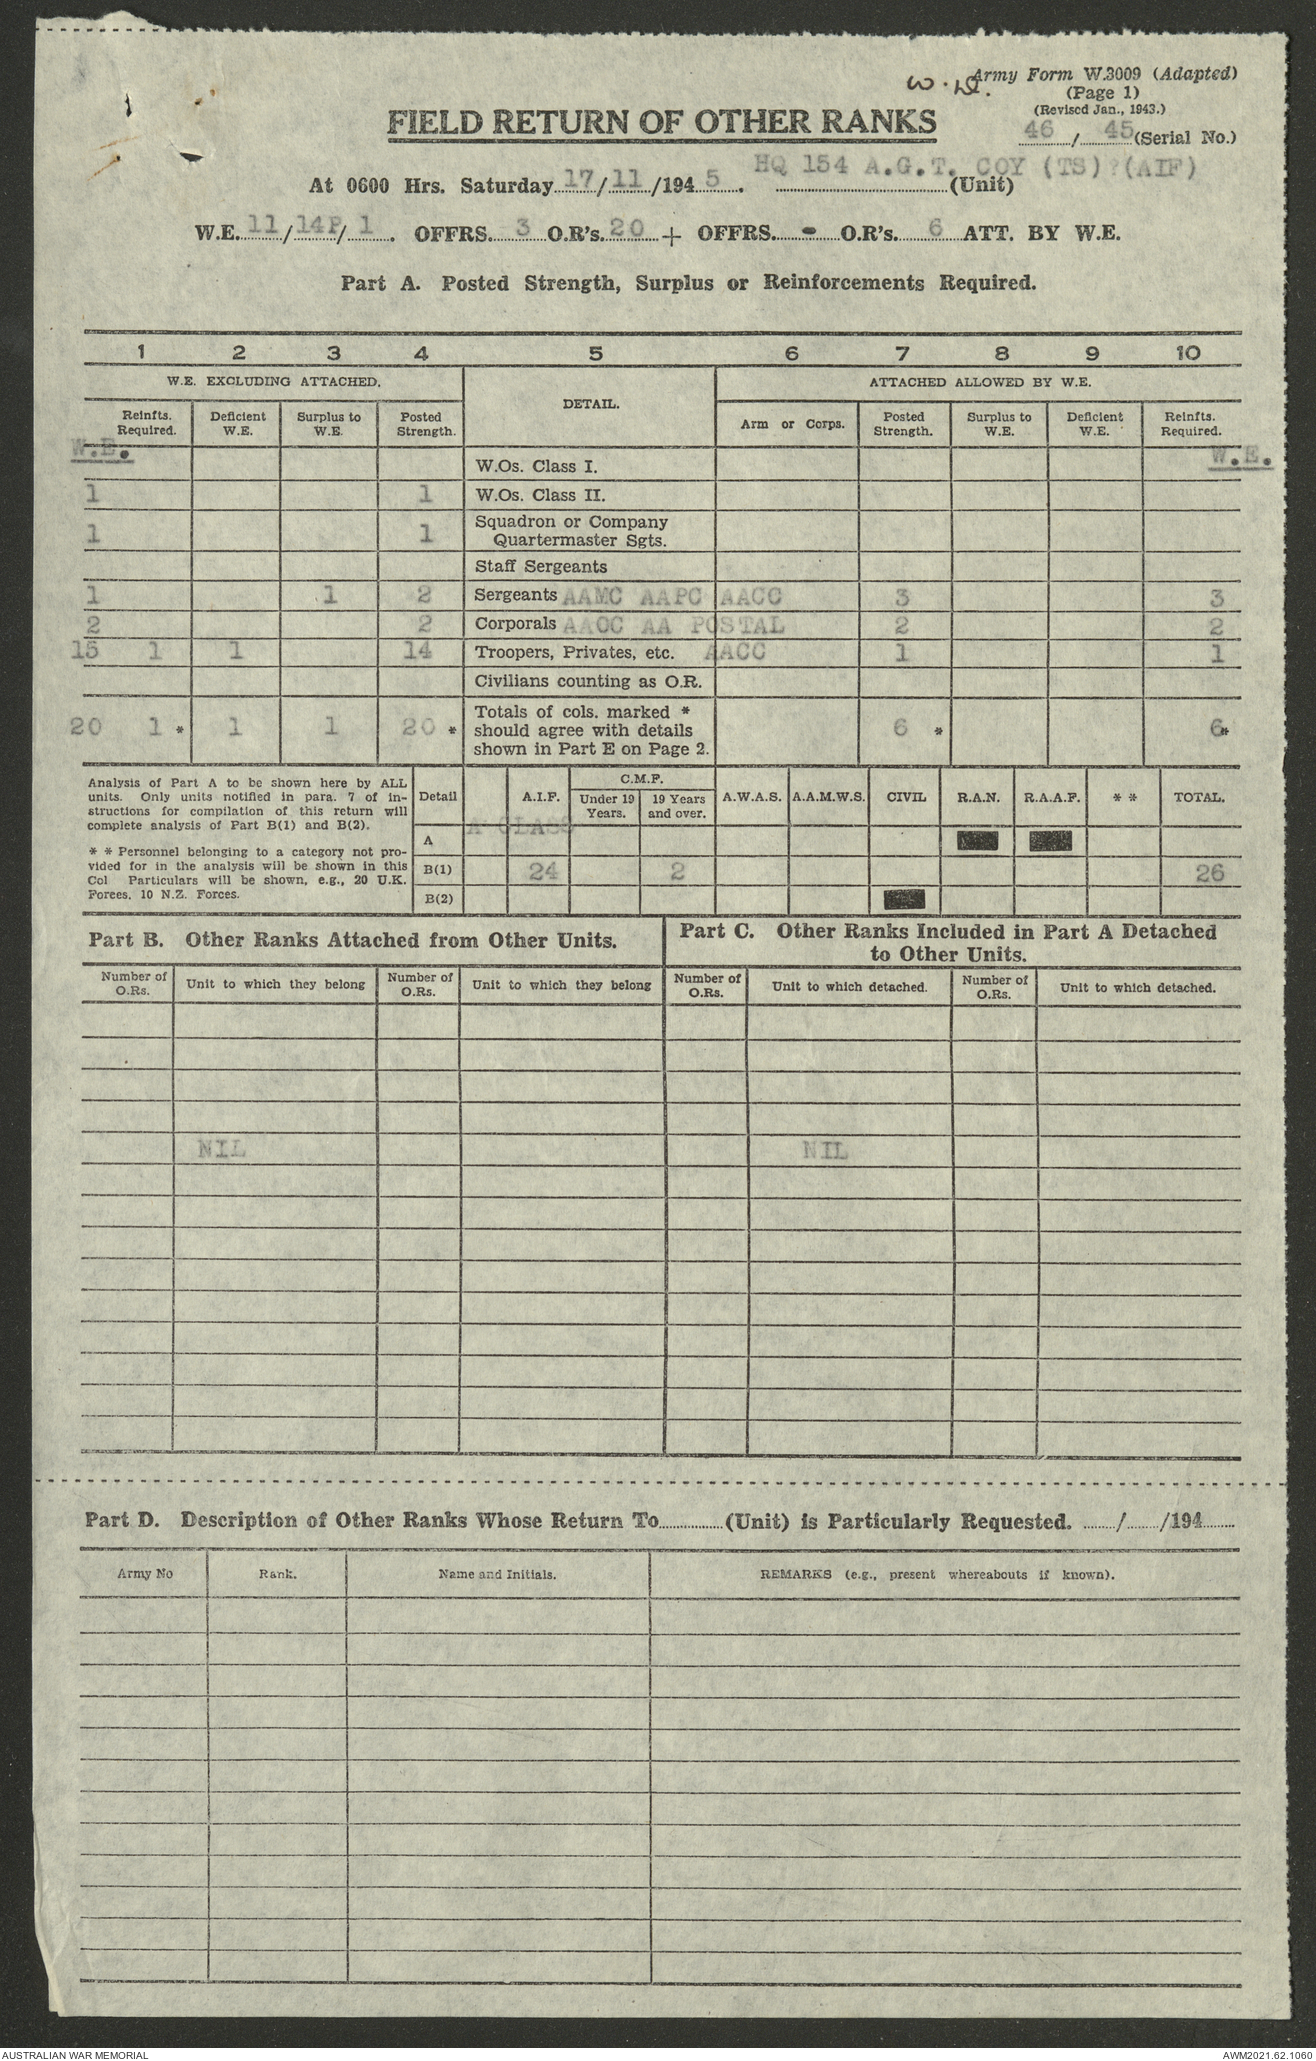 W.D.
Army Form W.3009 (Adapted)
(Page 1)
(Revised Jan., 1943.)
FIELD RETURN OF OTHER RANKS
46 / 45 (Serial No.)
At 0600 Hrs. Saturday 17/11/1945. HQ 154 A.G.T. COY (TS)?(AIF) (Unit)
W.E. 11/14P/ 1 . OFFRS. 3 O.R's. 20 + OFFRS. - O.R's. 6 ATT. BY W.E.
Part A. Posted Strength, Surplus or Reinforcements Required.
1 2 3 4 5 6 7 8 9 10
W.E. EXCLUDING ATTACHED. DETAIL. ATTACHED ALLOWED BY W.E.
Reinfts. Required. Deficient W.E. Surplus to W.E. Posted Strength. Arm or Corps. Posted Strength. Surplus to W.E. Deficient W.E. Reinfts. Required.
W.E. W.Os. Class I. W.E.
1 1 W.Os. Class II.
1 1 Squadron or Company
Quartermaster Sgts.
Staff Sergeants
1 1 2 Sergeants AAMC AAPC AACC 3 3
2 2 Corporals AAOC AA POSTAL 2 2
15 1 1 14 Troopers, Privates, etc. AACC 1 1
Civilians counting as O.R.
20 1 * 1 1 20 * Totals of cols. marked * should agree with details shown in Part E on Page 2. 6 * 6*
Analysis of Part A to be shown here by ALL
units. Only units notified in para. 7 of in-
structions for compilation of this return will
complete analysis of Part B(1) and B(2).
* * Personnel belonging to a category not pro-
vided for in the analysis will be shown in this
Col Particulars will be shown, e.g., 20 U.K.
Forces, 10 N.Z. Forces.
Detail A.I.F. C.M.F. Under 19 Years. 19 Years and over. A.W.A.S. A.A.M.W.S. CIVIL R.A.N. R.A.A.F. * * TOTAL.
A A CLASS
B(1) 24 2 26
B(2)
Part B. Other Ranks Attached from Other Units.
Part C. Other Ranks Included in Part A Detached
to Other Units.
Number of O.Rs. Unit to which they belong Number of O.Rs. Unit to which they belong Number of O.Rs. Unit to which detached. Number of O.Rs. Unit to which detached.
NIL NIL
Part D. Description of Other Ranks Whose Return To............(Unit) is Particularly Requested. ....../....../194......
Army No Rank. Name and Initials. REMARKS (e.g., present whereabouts if known).
AUSTRALIAN WAR MEMORIAL AWM2021.62.1060